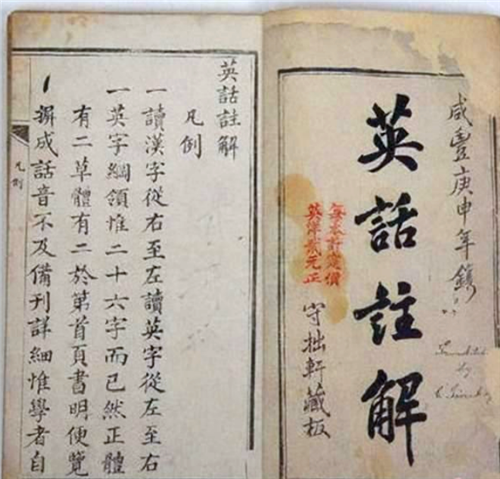 咸豐庚申年鐫
英話註解
每本計定價
英洋弍元正
守拙軒藏板
by
英話註解
凡例
一讀漢字從右至左讀英字從左至右
一英字綱領惟二十六字而已然正體
有二草體有二於第首頁書明便覽
一摒成話音不及備刊詳細惟學者自
凡例